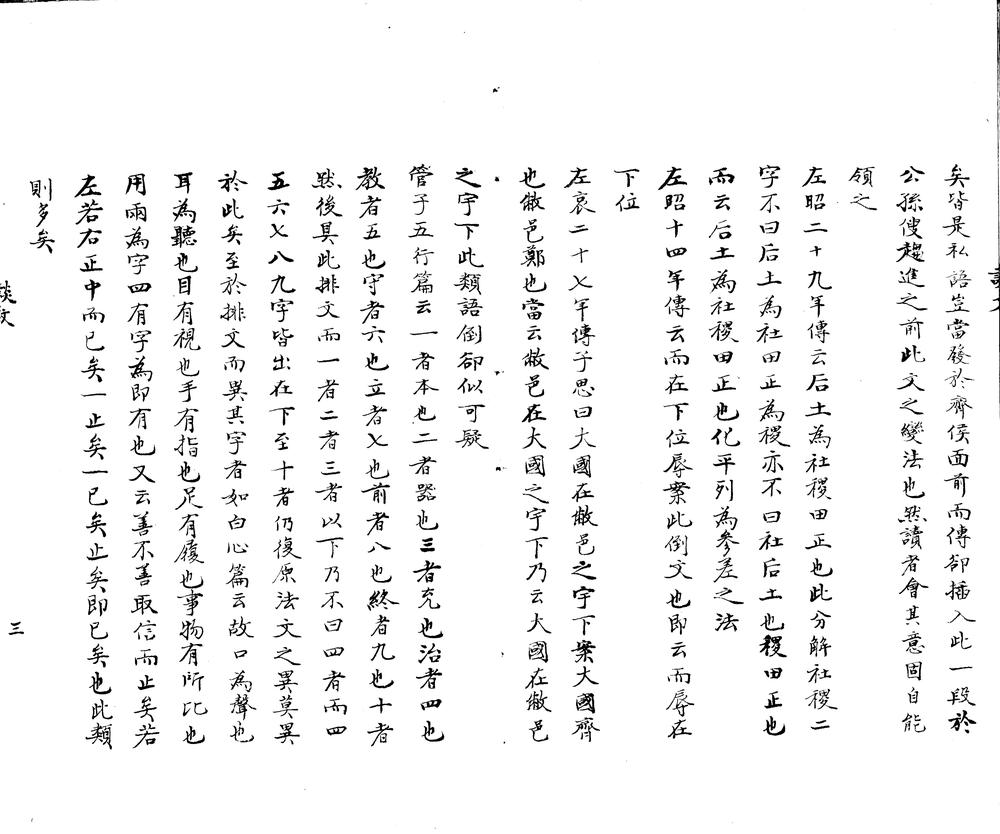 矣皆是私語豈當發於齊侯面前而傳卻插入此一段於
公孫傁趨進之前此文之變法也然讀者會其意固自能
領之
左昭二十九年傳云后土為社稷田正也此分解社稷二
字不曰后土為社田正為稷亦不曰社后土也稷田正也
而云后土為社稷田正也化平列為參差之法
左昭十四年傳云而在下位辱案此倒文也即云而辱在
下位
左哀二十七年傳子思曰大國在敝邑之宇下案大國齊
也敝邑鄭也當云敝邑在大國之宇下乃云大國在敝邑
之宇下此類語倒卻似可疑
管子五行篇云一者本也二者器也三者充也治者四也
教者五也守者六也立者七也前者八也終者九也十者
然後具此排文而一者二者三者以下乃不曰四者而四
五六七八九字皆出在下至十者仍復原法文之異莫異
於此矣至於排文而異其字者如白心篇云故口為聲也
耳為聽也目有視也手有指也足有履也事物有所比也
用兩為字四有字為即有也又云善不善取信而止矣若
左若右正中而已矣一止矣一已矣止矣即已矣也此類
則多矣
談文
三